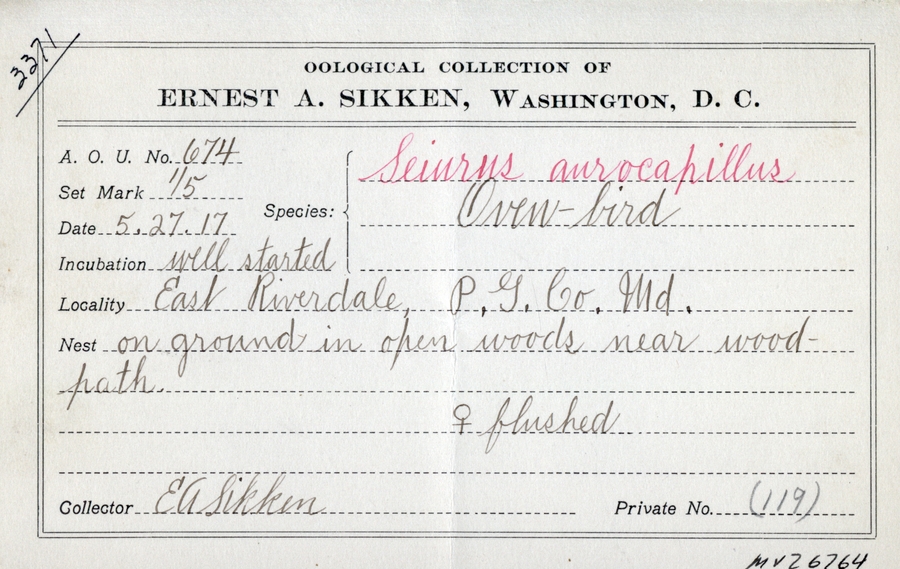 3371
OOLOGICAL COLLECTION OF
ERNEST A. SIKKEN, WASHINGTON, D. C.
A. O. U. No. 674
Set Mark 1/5
Date 5.27.17
Incubation well started
Species: Seiurus aurocapillus
Oven-bird
Locality East Riverdale, P. G. Co. Md.
Nest on ground in open woods near wood-
path.
♀ flushed
Collector EA Sikken
Private No. (119)
MVZ6764